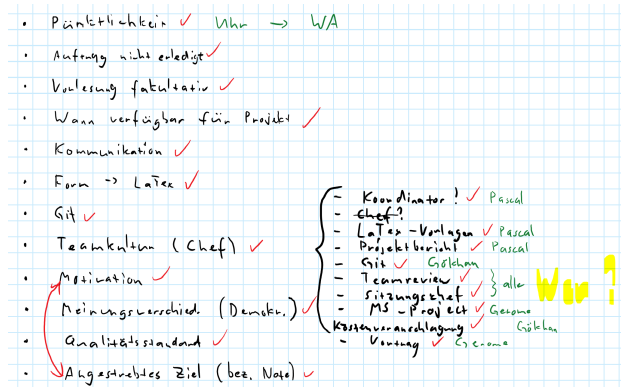 • Pünktlichkeit ✓ Uhr → WA
• Auftrag nicht erledigt ✓
• Vorlesung fakultativ ✓
• Wann verfügbar für Projekt ✓
• Kommunikation ✓
• Form → LaTex ✓
• Git ✓
• Teamkultur (Chef) ✓
• Motivation ✓
• Meinungsverschied. (Demokr.) ✓
• Qualitätsstandard ✓
• Angestrebtes Ziel (bez. Note) ✓
- Koordinator! ✓ Pascal
- Chef?
- LaTex-Vorlagen ✓ Pascal
- Projektbericht ✓ Pascal
- Git ✓ Gökhan
- Teamreview ✓
- Sitzungschef ✓ } alle
- MS-Project ✓ Gerome
Kostenveranschlagung ✓ Gökhan
- Vortrag ✓ Gerome
Wer?